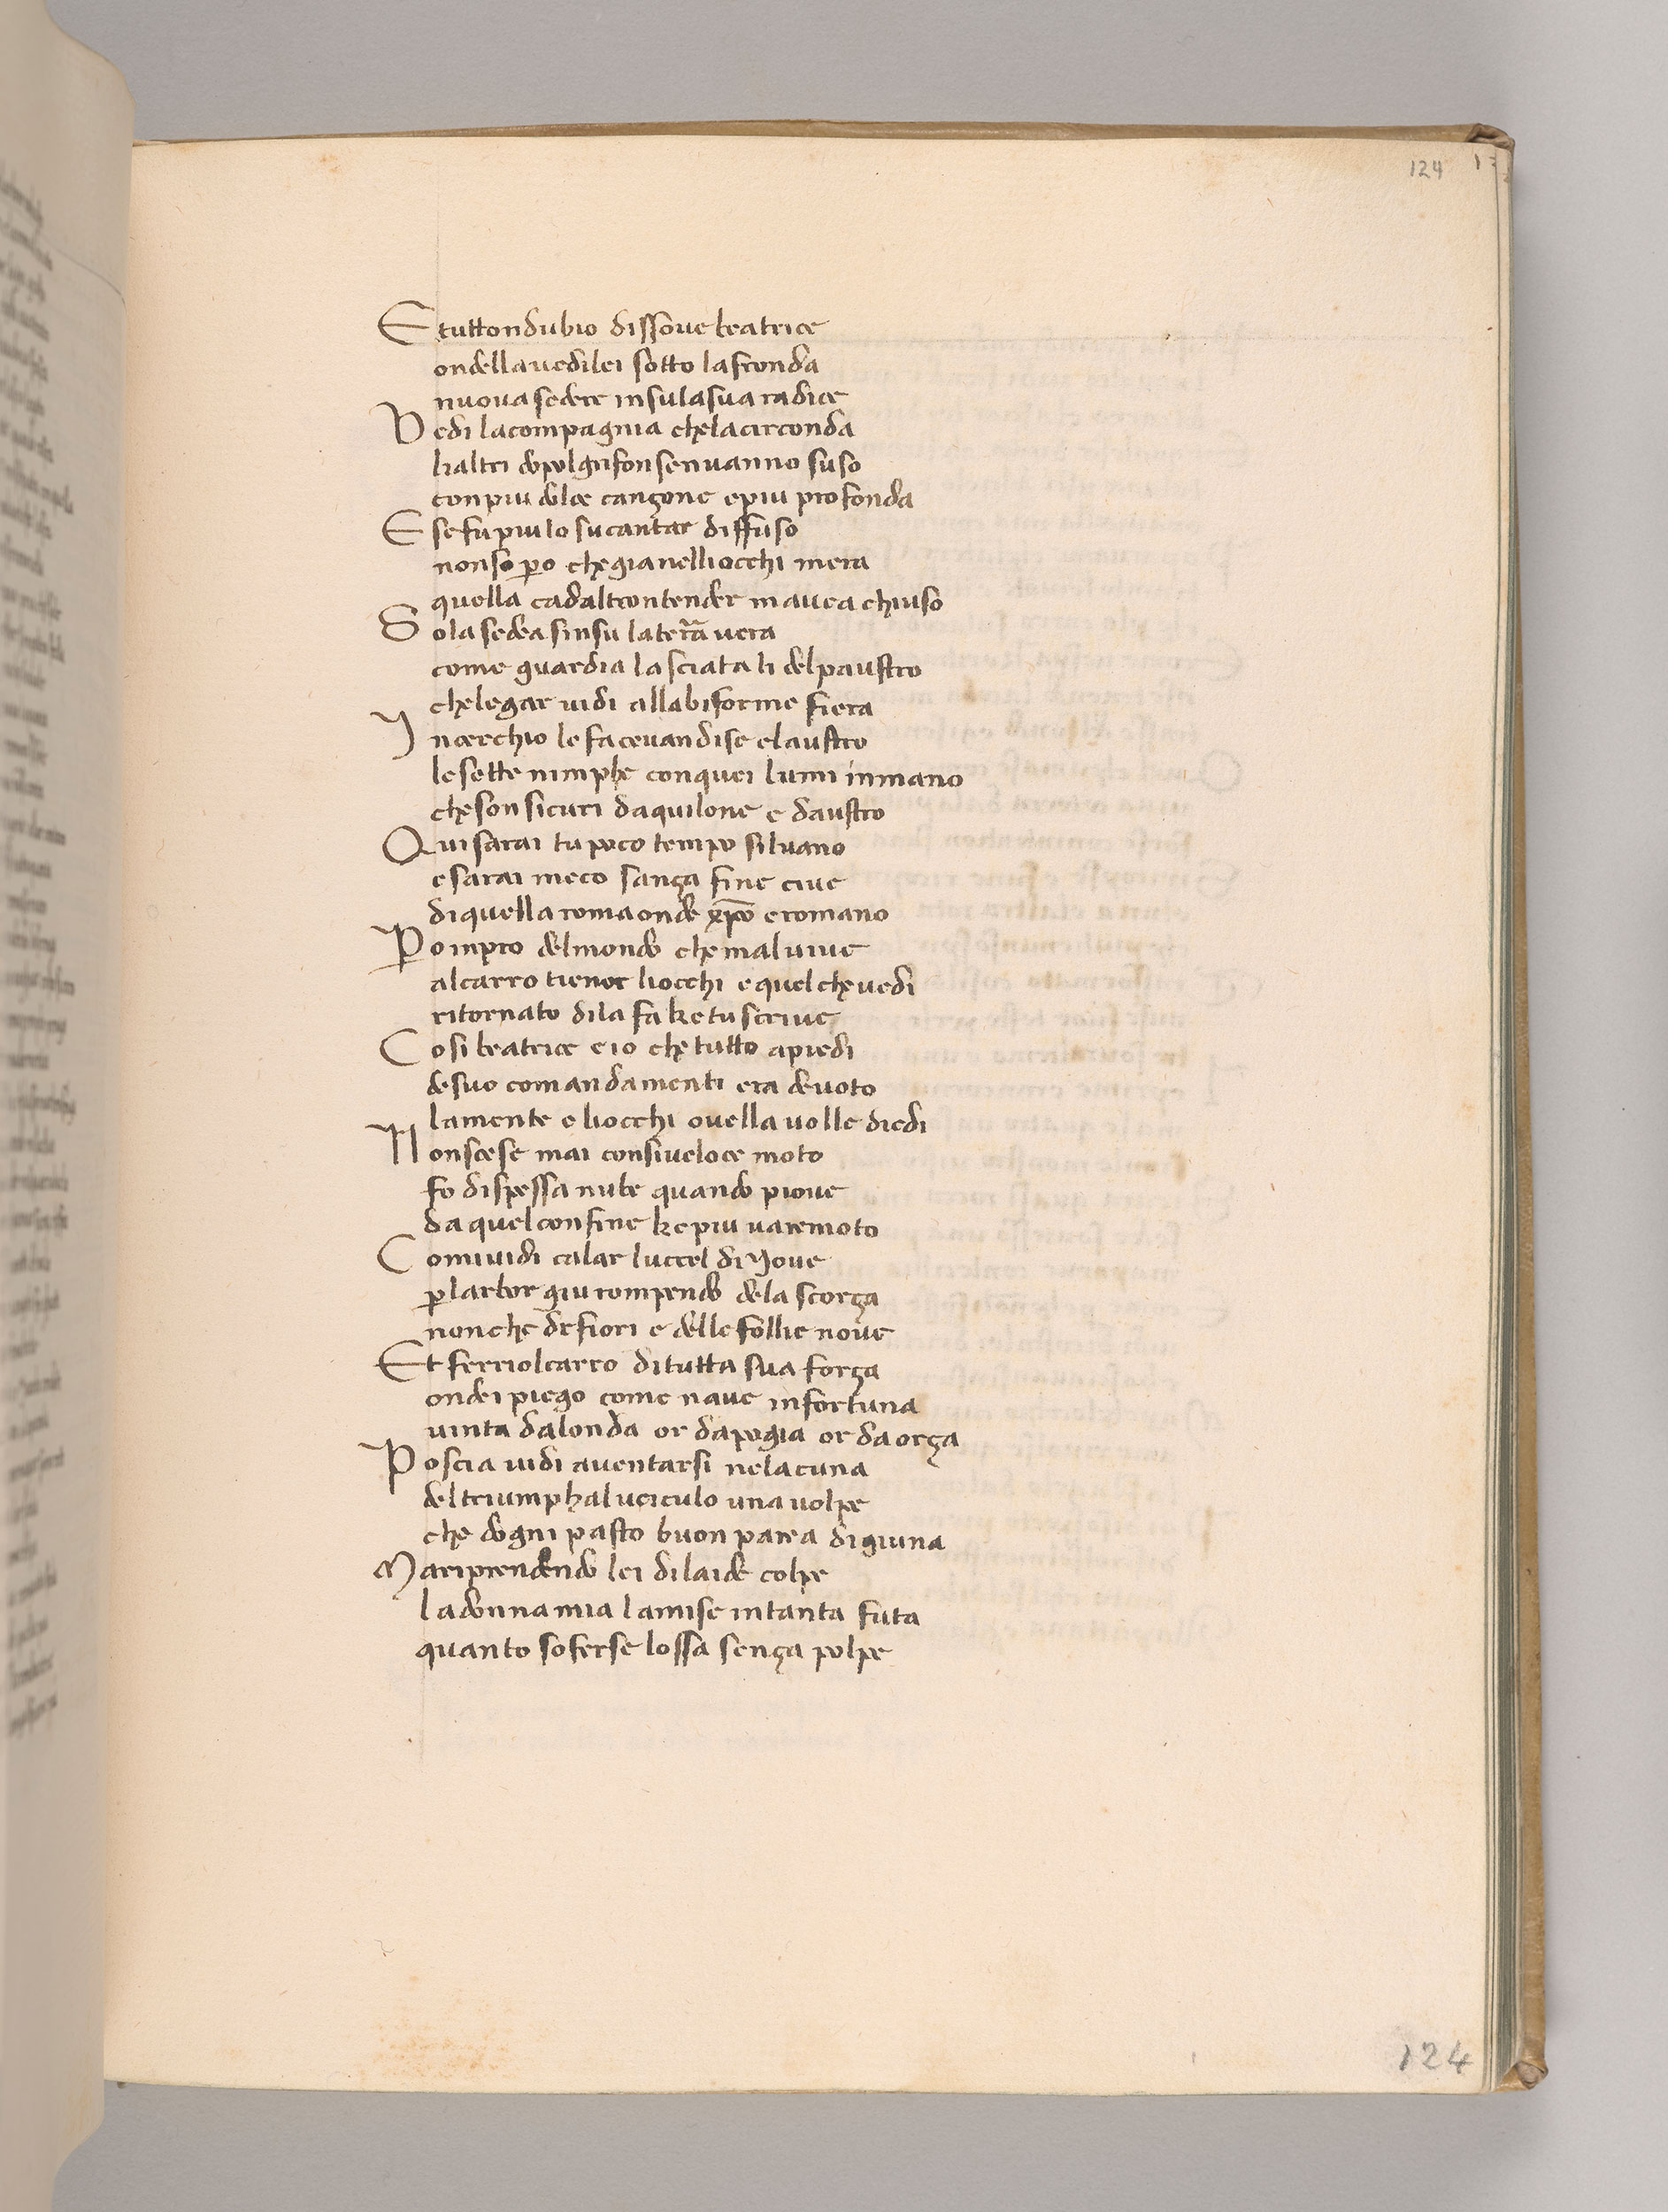 124
E tuttondubio dissoue beatrice
ondella uedi lei sotto la fronda
nuoua sedere insula sua radice
Vedi la compagnia che la circonda
li altri dopo lgrifon senuanno suso
con piu dolce cançone e piu profonda
E se fu piu lo su cantar diffuso
non so ꝑo che gia nelliocchi mera
quella cadaltrontender mauea chiuso
Sola sedeasi insu la terra uera
come guardia lasciata li del paustro
che legar uidi alla biforme fiera
In cerchio le faceuan di se claustro
le sette nimphe con quei lumi in mano
che son sicuri daquilone e daustro
Qui sarai tu poco tempo siluano
e sarai meco sança fine ciue
di quella roma onde xp̄o e romano
Po inpro del mondo che mal uiue
al carro tienor liocchi e quel che uedi
ritornato di la fa ke tu scriue
Cosi beatrice e io che tutto a piedi
de suo comandamenti era deuoto
la mente e liocchi ouella uolle diedi
Non scese mai con si ueloce moto
fo di spessa nube quando pioue
da quel confine ke piu ua remoto
Comi uidi calar luccel di Joue
ꝑ larbor giu rompendo dela scorça
non che de fiori e delle follie noue
Et ferri ol carro di tutta sua força
ondei piego come naue in fortuna
uinta dalonda or da pogia or da orça
Poscia uidi auentarsi nela cuna
del triumphal ueiculo una uolpe
che dogni pasto buon parea digiuna
Ma riprendendo lei di laide colpe
la donna mia la mise in tanta futa
quanto soferse lossa sença polpe
124